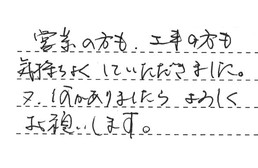 営業の方も、工事の方も
気持ちよくしていただきました。
又、何かありましたらよろしく
お願いします。